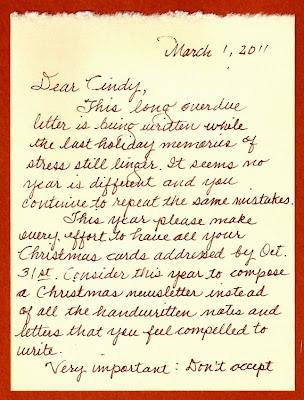 March 1, 2011
Dear Cindy,
This long overdue
letter is being written while
the last holiday memories of
stress still linger. It seems no
year is different and you
continue to repeat the same mistakes.
This year please make
every effort to have all your
Christmas cards addressed by Oct.
31st. Consider this year to compose
a Christmas newsletter instead
of all the handwritten notes and
letters that you feel compelled to
write.
Very important: Don't accept